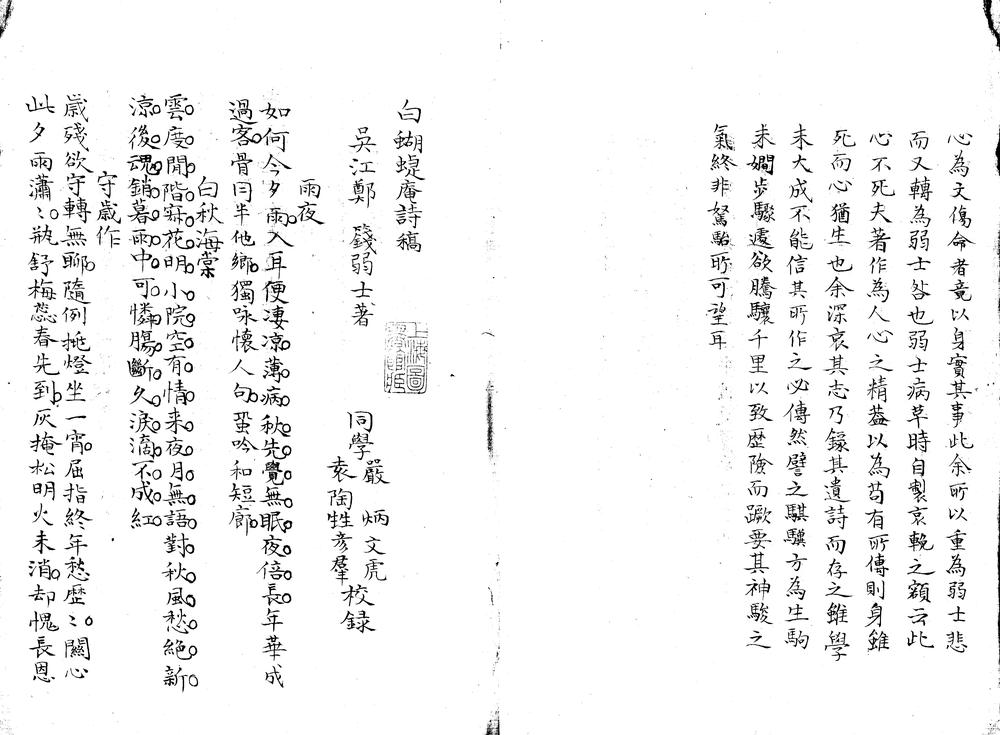 心為文傷命者竟以身實其事此余所以重為弱士悲
而又轉為弱士咎也弱士病革時自製哀輓之額云此
心不死夫著作為人心之精葢以為苟有所傳則身雖
死而心猶生也余深哀其志乃錄其遺詩而存之雖學
未大成不能信其所作之必傳然譬之騏驥方為生駒
未嫺步驟遽欲騰驤千里以致歷險而蹶要其神駿之
氣終非駑駘所可望耳
白蝴蝶庵詩稿
吳江鄭 篯弱士著
同學嚴 炳文虎
袁陶甡彥羣 校錄
雨夜
如何今夕雨入耳便淒凉薄病秋先覺無眠夜倍長年華成
過客骨肉半他鄉獨咏懷人句蛩吟和短廊
白秋海棠
雲度閒階寐花明小院空有情来夜月無語對秋風愁絕新
凉後魂銷暮雨中可憐腸斷久淚滴不成紅
守歲作
歲殘欲守轉無聊隨例挑燈坐一宵屈指終年愁歷〻關心
此夕雨瀟〻瓶舒梅蕊春先到灰掩松明火未消却愧長恩